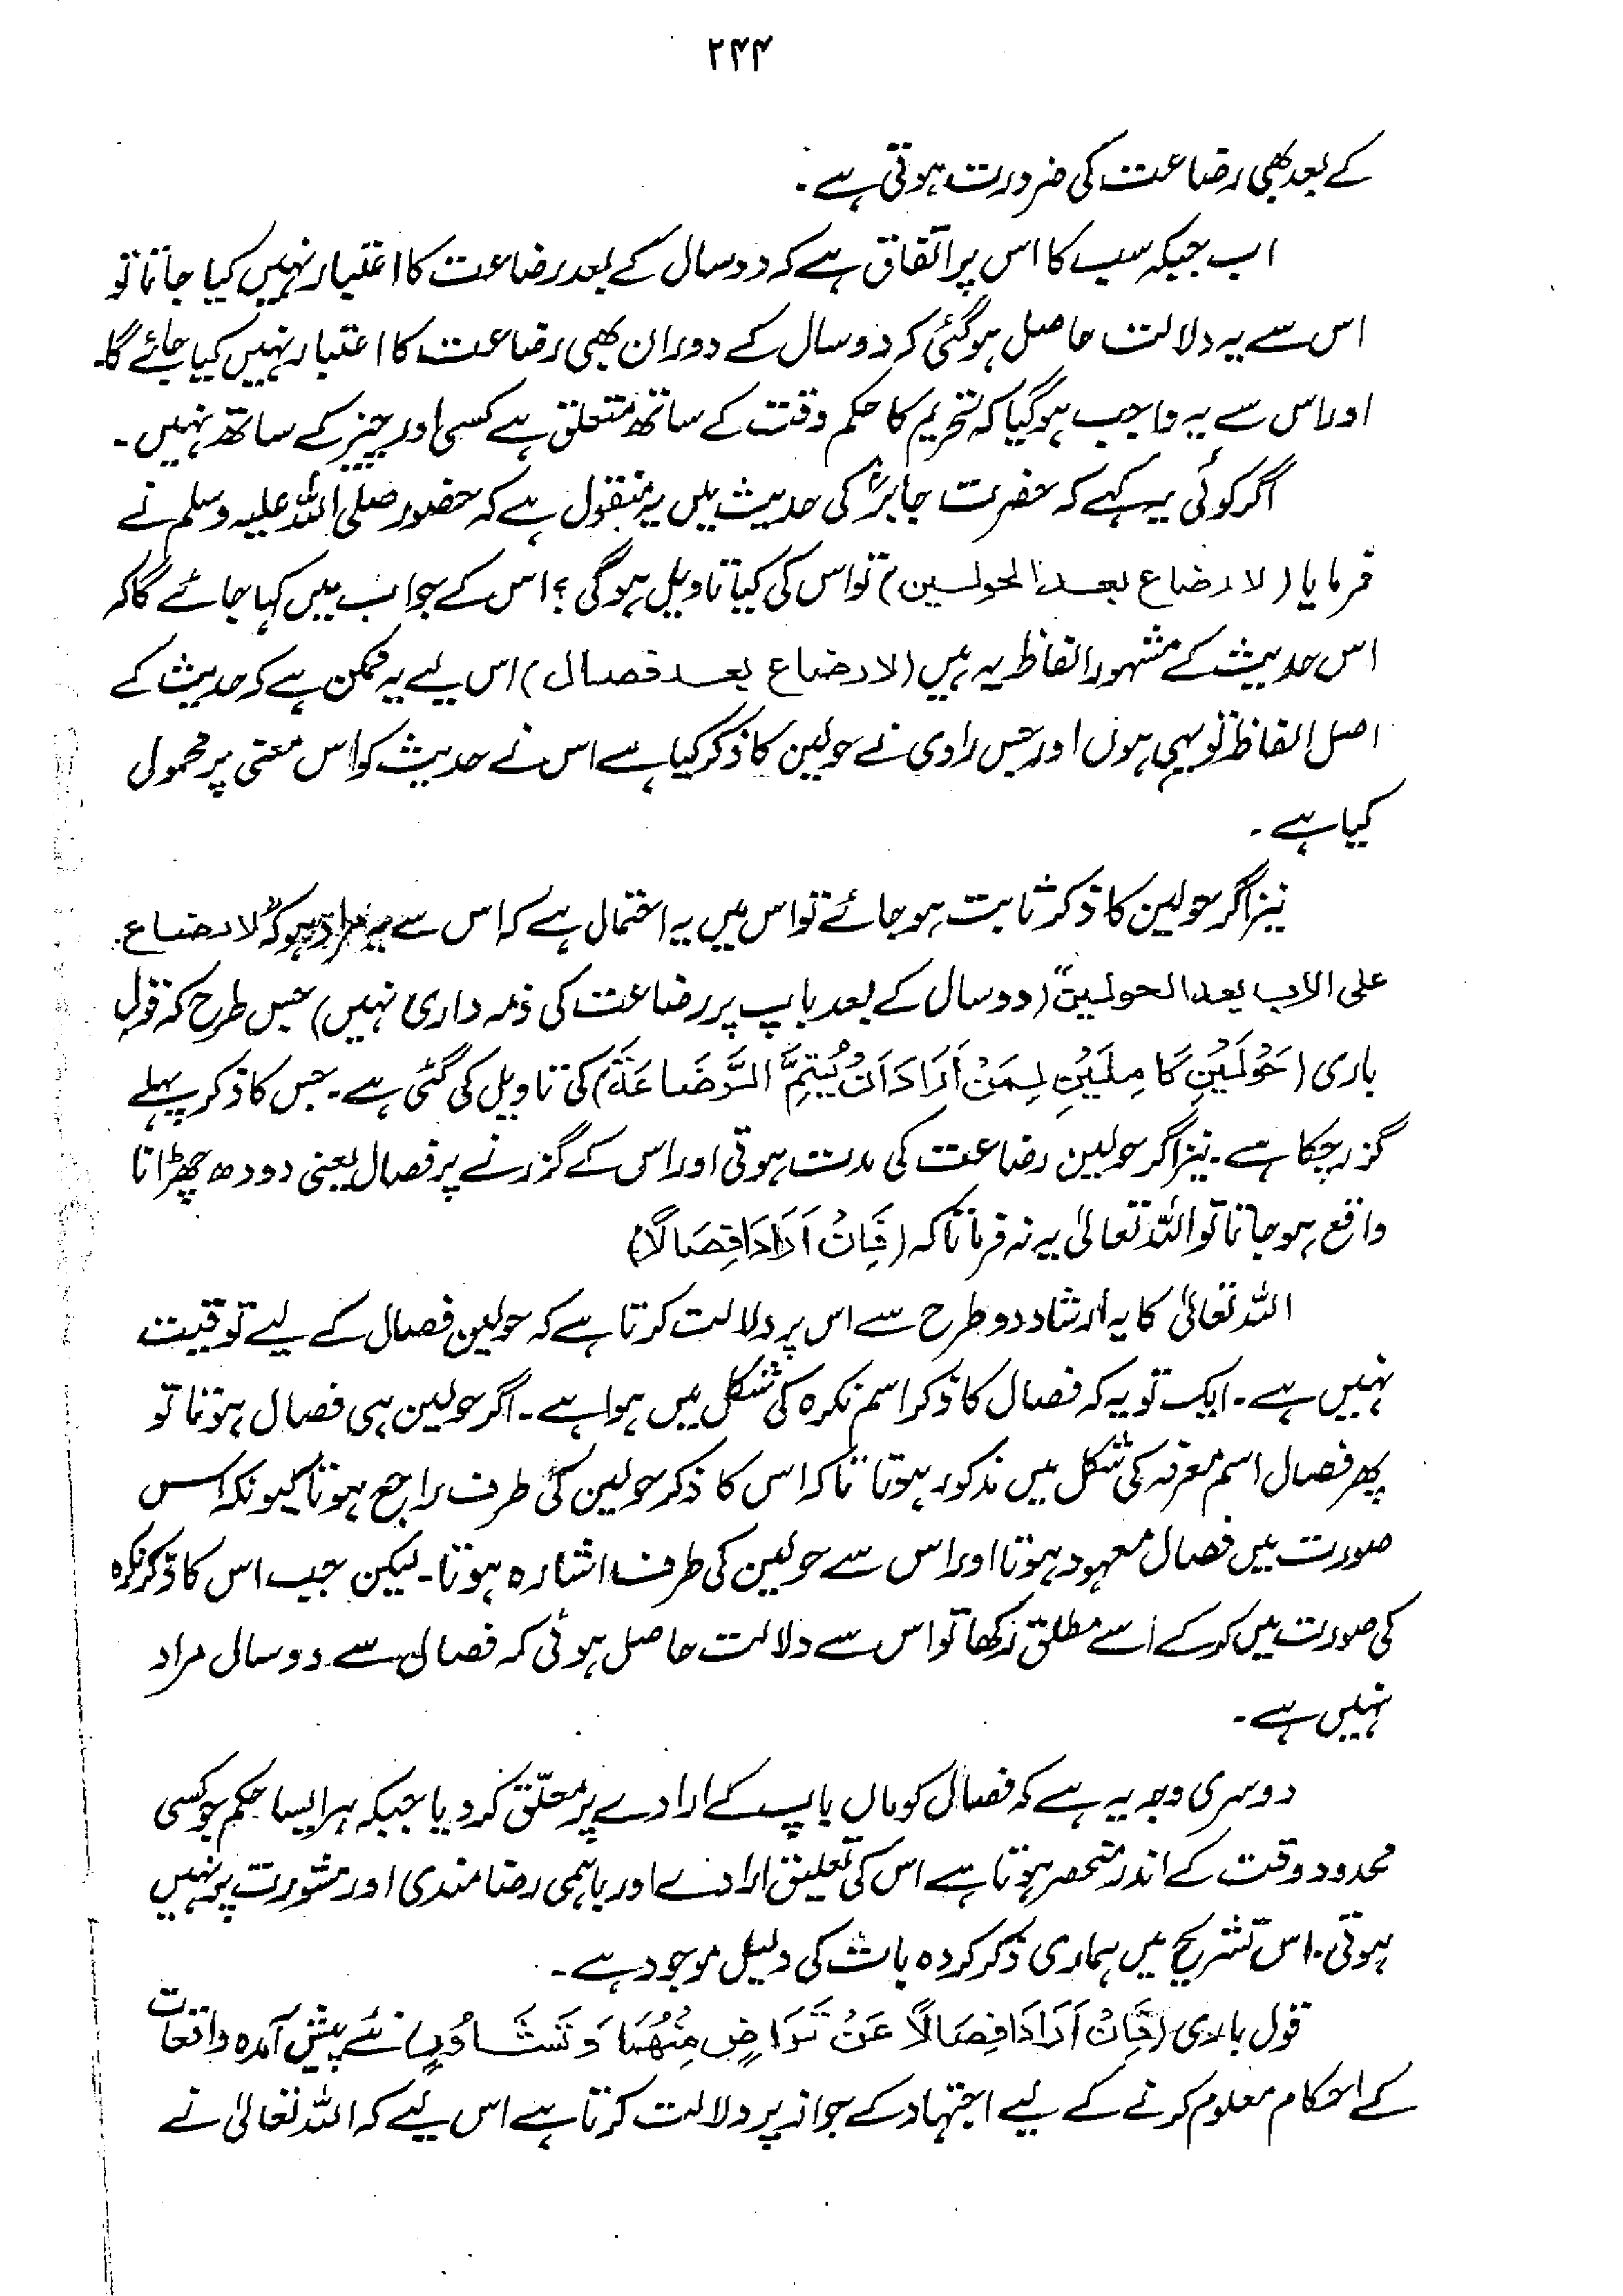 ۲۴۴
کے بعد بھی رضاعت کی ضرورت ہوتی ہے۔
اب جبکہ سب کا اس پر اتفاق ہے کہ دو سال کے بعد رضاعت کا اعتبار نہیں کیا جاتا تو
اس سے یہ دلالت حاصل ہوگئی کہ دو سال کے دوران بھی رضاعت کا اعتبار نہیں کیا جائے گا۔
اور اس سے یہ واجب ہوگیا کہ تحریم کا حکم وقت کے ساتھ متعلق ہے کسی اور چیز کے ساتھ نہیں۔
اگر کوئی یہ کہے کہ حضرت جابرؓ کی حدیث میں یہ منقول ہے کہ حضور صلی اللہ علیہ وسلم نے
فرمایا (لا رضاع بعد الحولین) تو اس کی کیا تاویل ہوگی؟ اس کے جواب میں کہا جائے گا کہ
اس حدیث کے مشہور الفاظ یہ ہیں (لا رضاع بعد فصال) اس لیے یہ ممکن ہے کہ حدیث کے
اصل الفاظ تو یہی ہوں اور جس راوی نے حولین کا ذکر کیا ہے اس نے حدیث کو اس معنی پر محمول
کیا ہے۔
نیز اگر حولین کا ذکر ثابت ہو جائے تو اس میں یہ احتمال ہے کہ اس سے یہ مراد ہو کہ "لا رضاع
علی الاب بعد الحولین" (دو سال کے بعد باپ پر رضاعت کی ذمہ داری نہیں) جس طرح کہ قول
باری (حَوْلَیْنِ كَامِلَیْنِ لِمَنْ اَرَادَ اَنْ یُّتِمَّ الرَّضَاعَةَ) کی تاویل کی گئی ہے۔ جس کا ذکر پہلے
گزر چکا ہے۔ نیز اگر حولین رضاعت کی مدت ہوتی اور اس کے گزرنے پر فصال یعنی دودھ چھڑانا
واقع ہو جاتا تو اللہ تعالیٰ یہ نہ فرماتا کہ (فَاِنْ اَرَادَا فِصَالًا)
اللہ تعالیٰ کا یہ ارشاد دو طرح سے اس پر دلالت کرتا ہے کہ حولین فصال کے لیے توقیت
نہیں ہے۔ ایک تو یہ کہ فصال کا ذکر اسم نکرہ کی شکل میں ہوا ہے۔ اگر حولین ہی فصال ہوتا تو
پھر فصال اسم معرفہ کی شکل میں مذکور ہوتا تاکہ اس کا ذکر حولین کی طرف راجع ہوتا کیونکہ اس
صورت میں فصال معہود ہوتا اور اس سے حولین کی طرف اشارہ ہوتا۔ لیکن جب اس کا ذکر نکرہ
کی صورت میں کر کے اسے مطلق رکھا تو اس سے دلالت حاصل ہوئی کہ فصال سے دو سال مراد
نہیں ہے۔
دوسری وجہ یہ ہے کہ فصال کو ماں باپ کے ارادے پر معلّق کر دیا جبکہ ہر ایسا حکم جو کسی
محدود وقت کے اندر منحصر ہوتا ہے اس کی تعلیق ارادے اور باہمی رضامندی اور مشورت پر نہیں
ہوتی۔ اس تشریح میں ہماری ذکر کردہ بات کی دلیل موجود ہے۔
قول باری (فَاِنْ اَرَادَا فِصَالًا عَنْ تَرَاضٍ مِنْهُمَا وَتَشَاوُرٍ) نئے پیش آمدہ واقعات
کے احکام معلوم کرنے کے لیے اجتہاد کے جواز پر دلالت کرتا ہے اس لیے کہ اللہ تعالیٰ نے